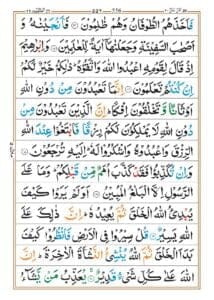 فَاَخَذَهُمُ الطُّوْفَانُ وَهُمْ ظٰلِمُوْنَ ۝ فَاَنْجَيْنٰهُ وَ
اَصْحٰبَ السَّفِيْنَةِ وَجَعَلْنٰهَآ اٰيَةً لِّلْعٰلَمِيْنَ ۝ وَاِبْرٰهِيْمَ
اِذْ قَالَ لِقَوْمِهِ اعْبُدُوا اللّٰهَ وَاتَّقُوْهُ ؕ ذٰلِكُمْ خَيْرٌ لَّكُمْ
اِنْ كُنْتُمْ تَعْلَمُوْنَ ۝ اِنَّمَا تَعْبُدُوْنَ مِنْ دُوْنِ اللّٰهِ
اَوْثَانًا وَّتَخْلُقُوْنَ اِفْكًا ؕ اِنَّ الَّذِيْنَ تَعْبُدُوْنَ مِنْ
دُوْنِ اللّٰهِ لَا يَمْلِكُوْنَ لَكُمْ رِزْقًا فَابْتَغُوْا عِنْدَ اللّٰهِ
الرِّزْقَ وَاعْبُدُوْهُ وَاشْكُرُوْا لَهٗ ؕ اِلَيْهِ تُرْجَعُوْنَ ۝
وَاِنْ تُكَذِّبُوْا فَقَدْ كَذَّبَ اُمَمٌ مِّنْ قَبْلِكُمْ ؕ وَمَا عَلَى
الرَّسُوْلِ اِلَّا الْبَلٰغُ الْمُبِيْنُ ۝ اَوَلَمْ يَرَوْا كَيْفَ
يُبْدِئُ اللّٰهُ الْخَلْقَ ثُمَّ يُعِيْدُهٗ ؕ اِنَّ ذٰلِكَ عَلَى
اللّٰهِ يَسِيْرٌ ۝ قُلْ سِيْرُوْا فِي الْاَرْضِ فَانْظُرُوْا كَيْفَ
بَدَاَ الْخَلْقَ ثُمَّ اللّٰهُ يُنْشِئُ النَّشْاَةَ الْاٰخِرَةَ ؕ اِنَّ
اللّٰهَ عَلٰى كُلِّ شَيْءٍ قَدِيْرٌ ۝ يُعَذِّبُ مَنْ يَّشَآءُ